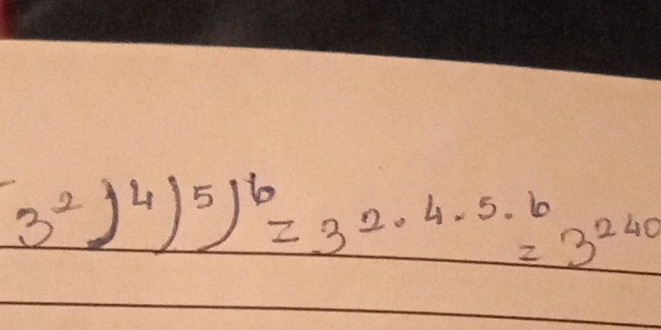 3²)⁴)⁵)⁶ = 3^2·4·5·6 = 3²⁴⁰